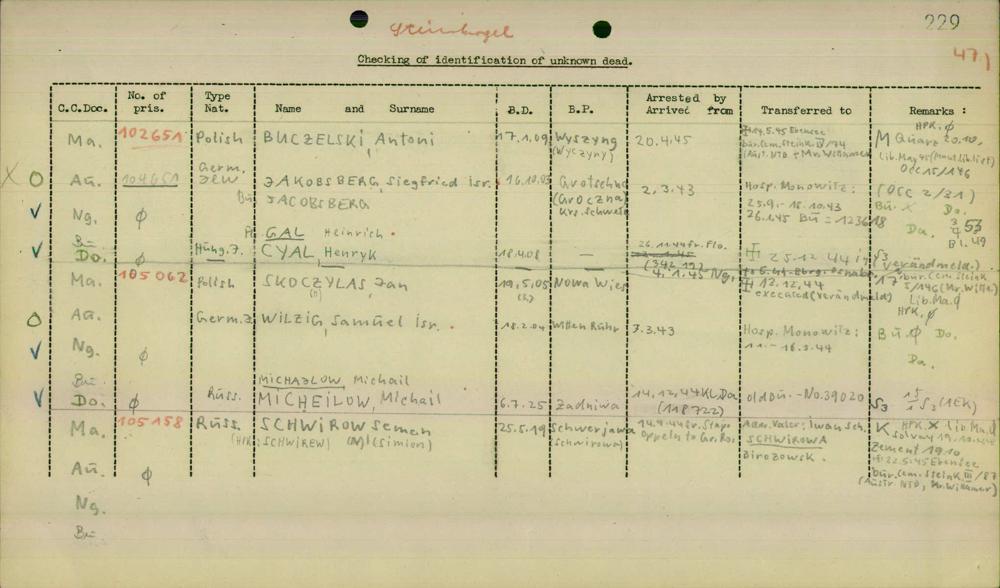 229
Steinkogel
47)
Checking of identification of unknown dead.
C.C.Doc. No. of pris. Type Nat. Name and Surname B.D. B.P. Arrested by Arrived from Transferred to Remarks :
HPK. ø
Ma. 102651 Polish BUCZELSKI, Antoni 17.1.09 Wyszyng (Wyczyny) 20.4.45 ☩ 14.5.45 Ebensee M Quarz 20.10.
bür. Cem. Steink. IV/174
(Aust. NTO + Mr. Willamer)
Occ 15/146
X O Au. 104651 Germ. Jew JAKOBSBERG, Siegfried Isr. 16.10.03 Grotschno 2.3.43 Hosp. Monowitz: (OCC 2/31)
Bu JACOBSBERG (Groczna 25.9.-15.10.43 Bü. X Do.
V Ng. ø Krs. Schwetz 26.1.45 Bü = 123618 Da. 3/4 53
GAL Heinrich Bl. 49
Bü
V Do. ø Hung. J. CYAL, Henryk 18.4.08 — 26.11.44 fr. Flo. ☩ 25.12.44 S3
(34219) verändmeld.)
Ma. 105062 Polish SKOCZYLAS, Jan 19.5.05 Nowa Wies 4.1.45 Ng. ☩ 12.12.44 17 bür. Cem. Steink
executed (verändmeld) 5/146 (Mr. Willa.)
Lib. Ma. q
HPK. ø
O Au. Germ. J WILZIG, Samuel Isr. 18.2.04 Witten Ruhr 3.3.43 Hosp. Monowitz: Bü. ø Do.
V Ng. ø 11.-16.2.44 Da.
Bü MICHAJLOW, Michail
V Do. ø Russ. MICHEILOW, Michail 6.7.25 Zadniwa 14.12.44 KL. Da old Bü. - No. 39020 S3 15/1 S2 (1EK)
(118722)
Ma. 105158 Russ. SCHWIROW Semen 25.5.19 Schwerjawa 14.9.44 fr. Stapo Adr. Vater: Iwan Sch. K HPK. X Lib. Ma. q
(HPK: SCHWIREW) (M) (Simion) (Schwirowa) Oppeln to Gr. Ros SCHWIROWA Solvay 19.10.44
Birozowsk. Zement 19.10
☩ 22.5.45 Ebensee
Au. ø bür. Cem. Steink. III/87
(Austr. NTO, Mr. Willamer)
Ng.
Bü